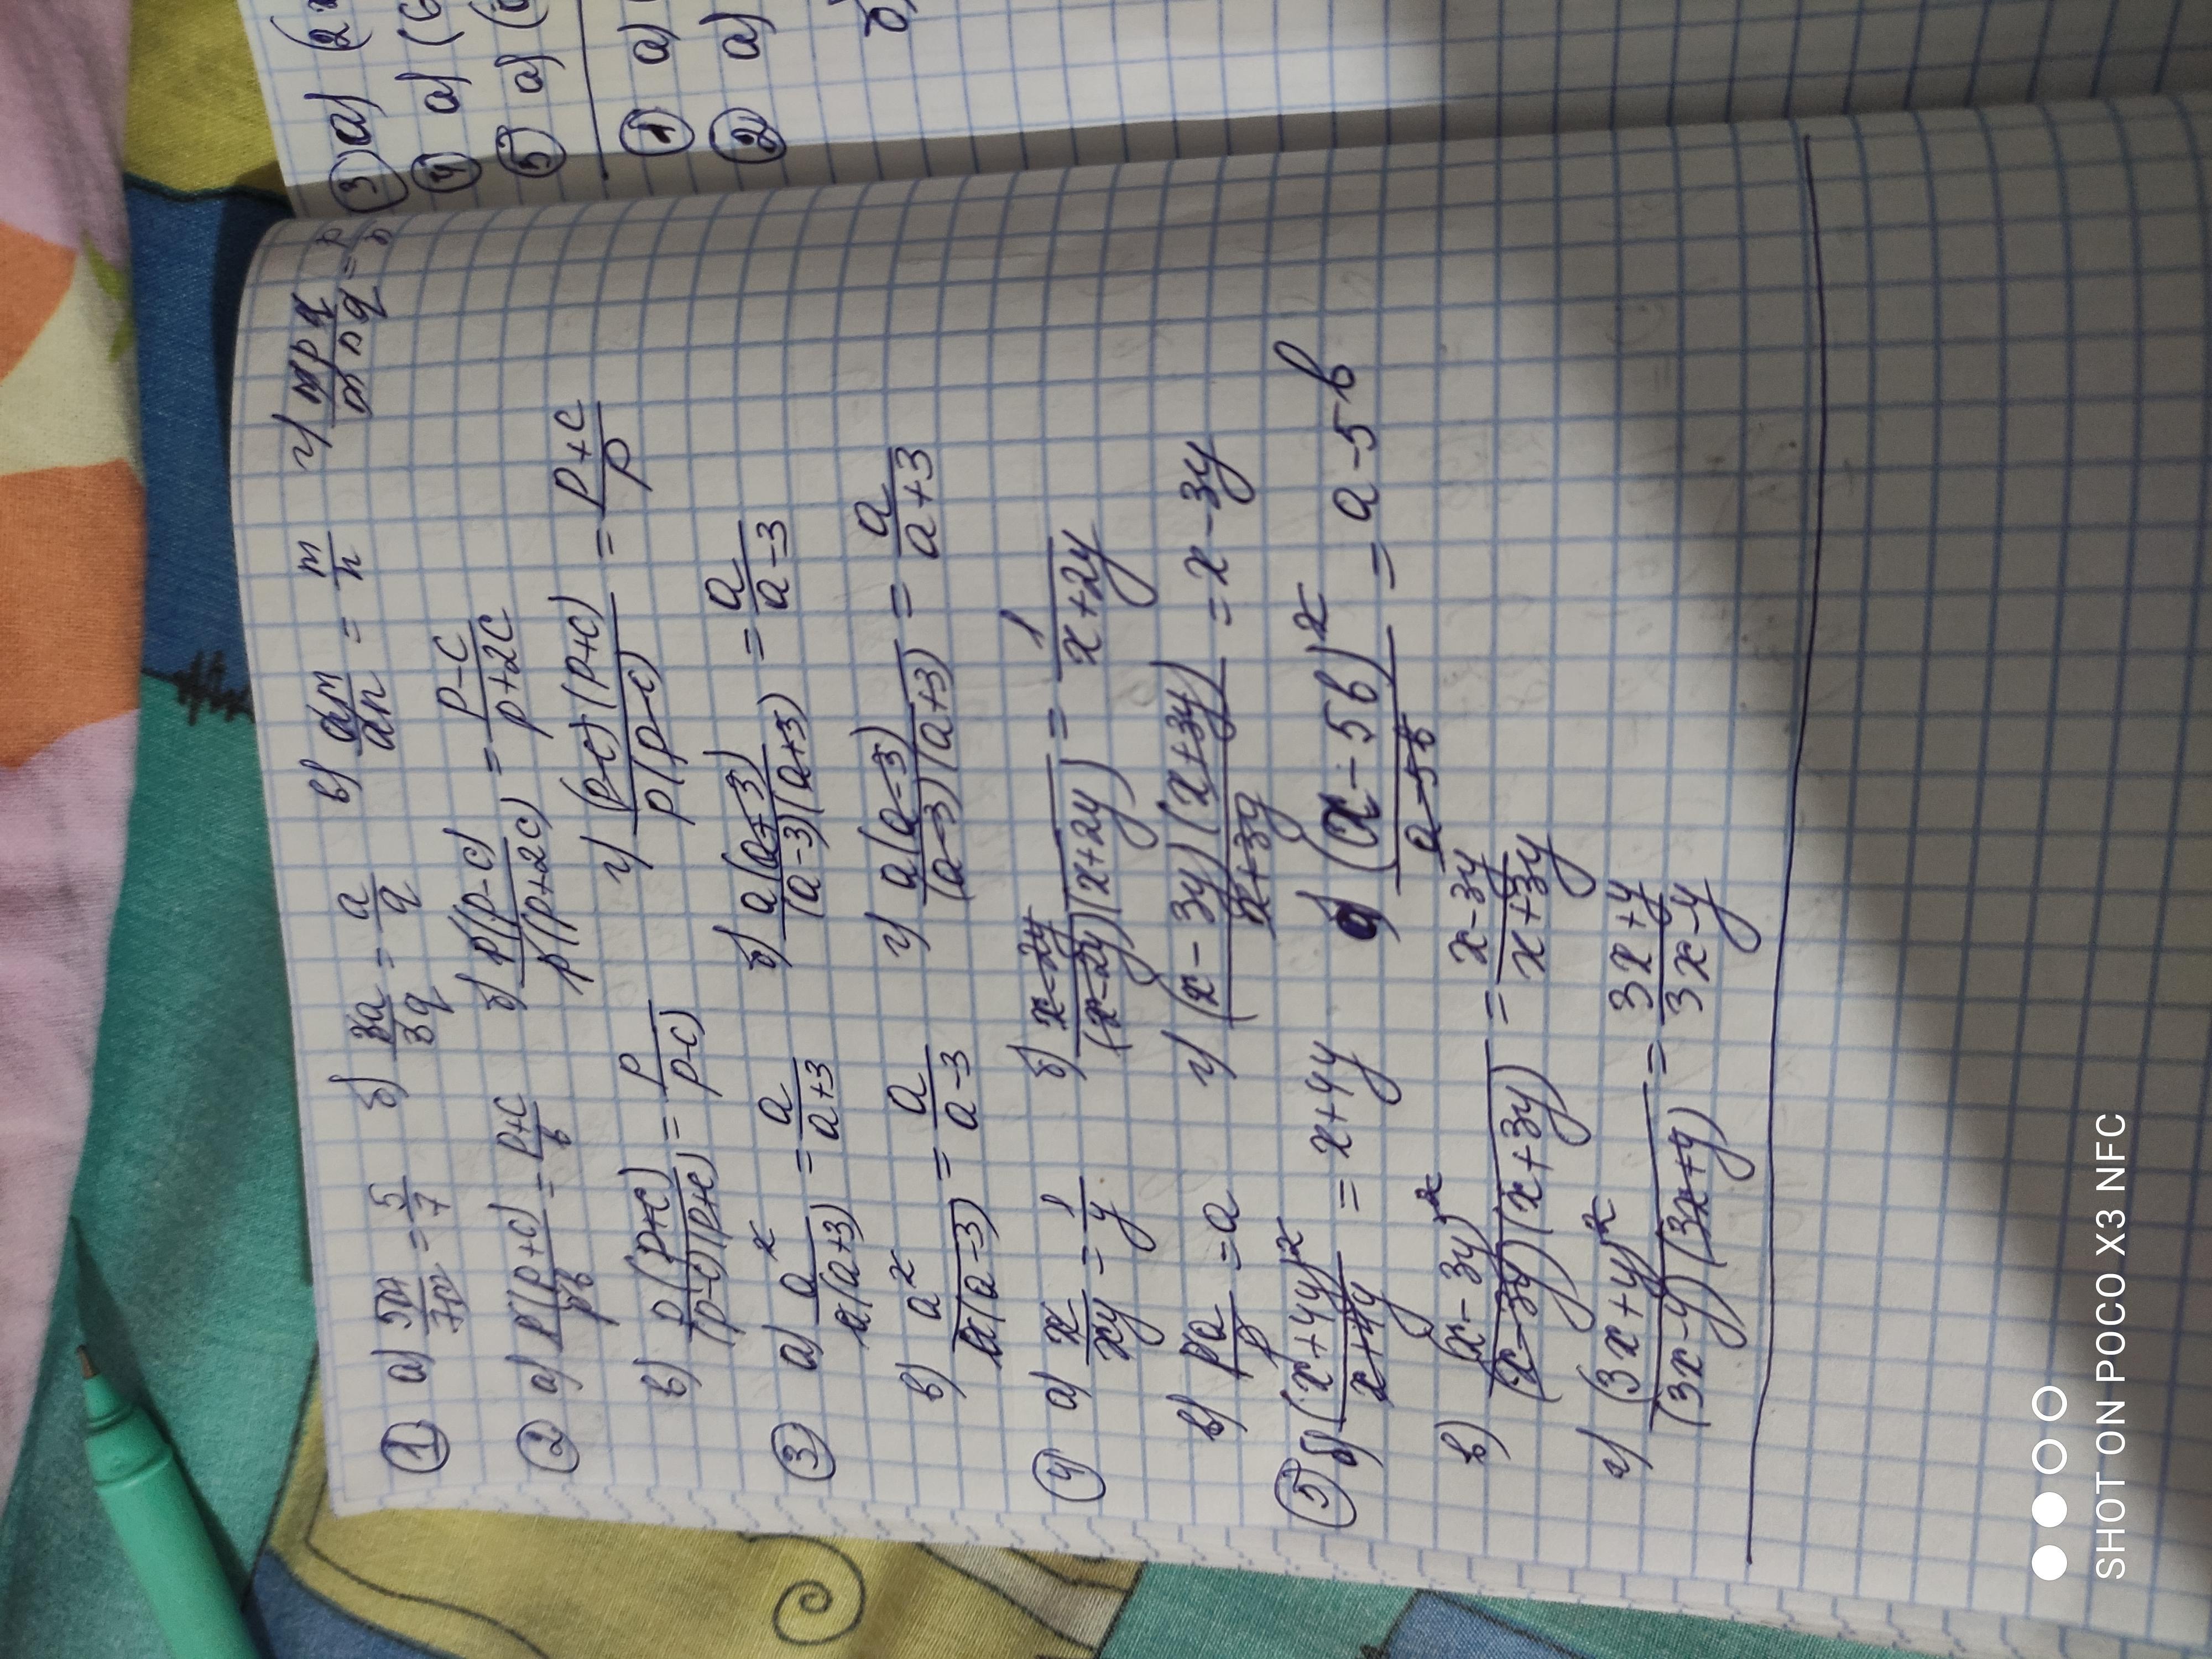 ① а) 5m/7m = 5/7 б) 3a/3q = a/q в) am/an = m/n г) mpq/mnq =
② а) p(p+c)/pb = p+c/b б) p(p-c)/p(p+2c) = p-c/p+2c
в) p(p+c)/(p-c)(p+c) = p/p-c г) (p-c)(p+c)/p(p-c) = p+c/p
③ а) a²/a(a+3) = a/a+3 б) a(a+3)/(a-3)(a+3) = a/a-3
в) a²/a(a-3) = a/a-3 г) a(a-3)/(a-3)(a+3) = a/a+3
④ а) x/xy = 1/y б) x-2y/(x-2y)(x+2y) = 1/x+2y
в) = a г) (x-3y)(x+3y)/x+3y = x-3y
⑤ б) (x+4y)²/x+4y = x+4y а) (a-5b)²/a-5b = a-5b
в) (x-3y)²/(x-3y)(x+3y) = x-3y/x+3y
г) (3x+y)²/(3x-y)(3x+y) = 3x+y/3x-y
③ а) (2
④ а) (6
⑤ а) (
① а)
② а)
б)
SHOT ON POCO X3 NFC